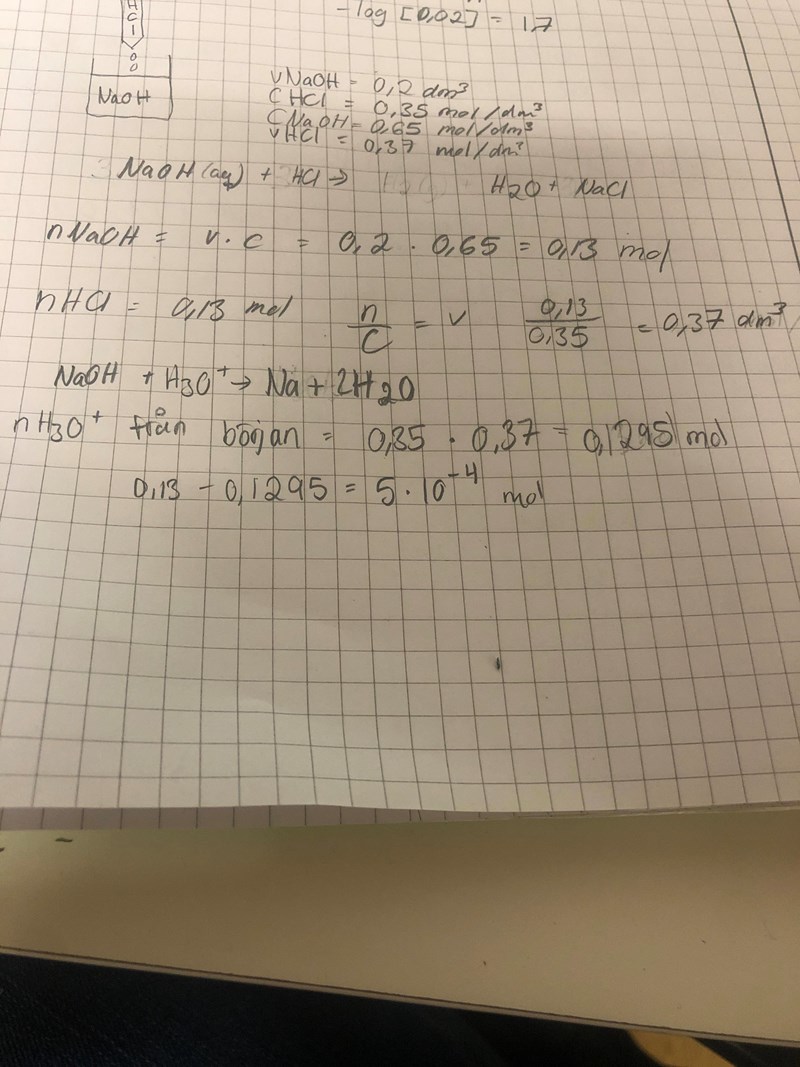 -log [0,02] = 1,7
HCl
NaOH
vNaOH = 0,2 dm³
CHCl = 0,35 mol/dm³
CNaOH = 0,65 mol/dm³
vHCl = 0,37 mol/dm³
NaOH(aq) + HCl → H2O + NaCl
nNaOH = v · c = 0,2 · 0,65 = 0,13 mol
nHCl = 0,13 mol n/C = v 0,13/0,35 = 0,37 dm³
NaOH + H3O⁺ → Na + 2H2O
nH3O⁺ från början = 0,35 · 0,37 = 0,1295 mol
0,13 - 0,1295 = 5 · 10⁻⁴ mol